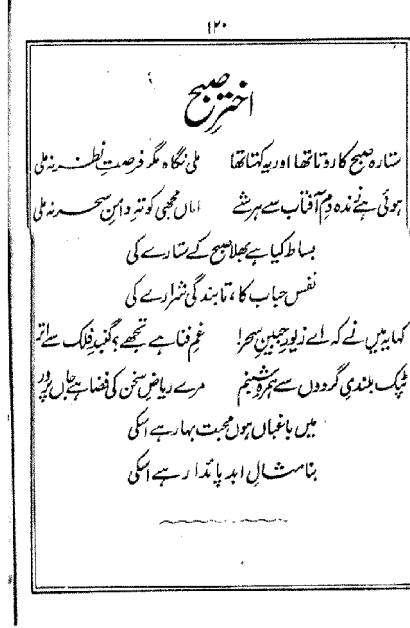 ۱۲۰
اخترِ صبح
ستارہ صبح کا روتا تھا اور یہ کہتا تھا ملی نگاہ مگر فرصتِ نظر نہ ملی
ہوئی ہے زندہ دمِ آفتاب سے ہر شے اماں مجھی کو تہِ دامنِ سحر نہ ملی
بساط کیا ہے بھلا صبح کے ستارے کی
نفس حباب کا، تابندگی شرارے کی
کہا یہ میں نے کہ اے زیورِ جبینِ سحر! غمِ فنا ہے تجھے؟ گنبدِ فلک سے اتر
ٹپک بلندیِ گردوں سے ہمرہِ شبنم مرے ریاضِ سخن کی فضا ہے جاں پرور
میں باغباں ہوں محبت بہار ہے اسکی
بنا مثالِ ابد پائدار ہے اسکی